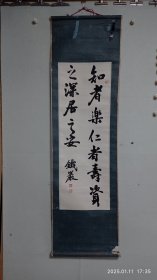 知者樂仁者壽資
之深居之安
鐵嚴
2025.01.11 17:35